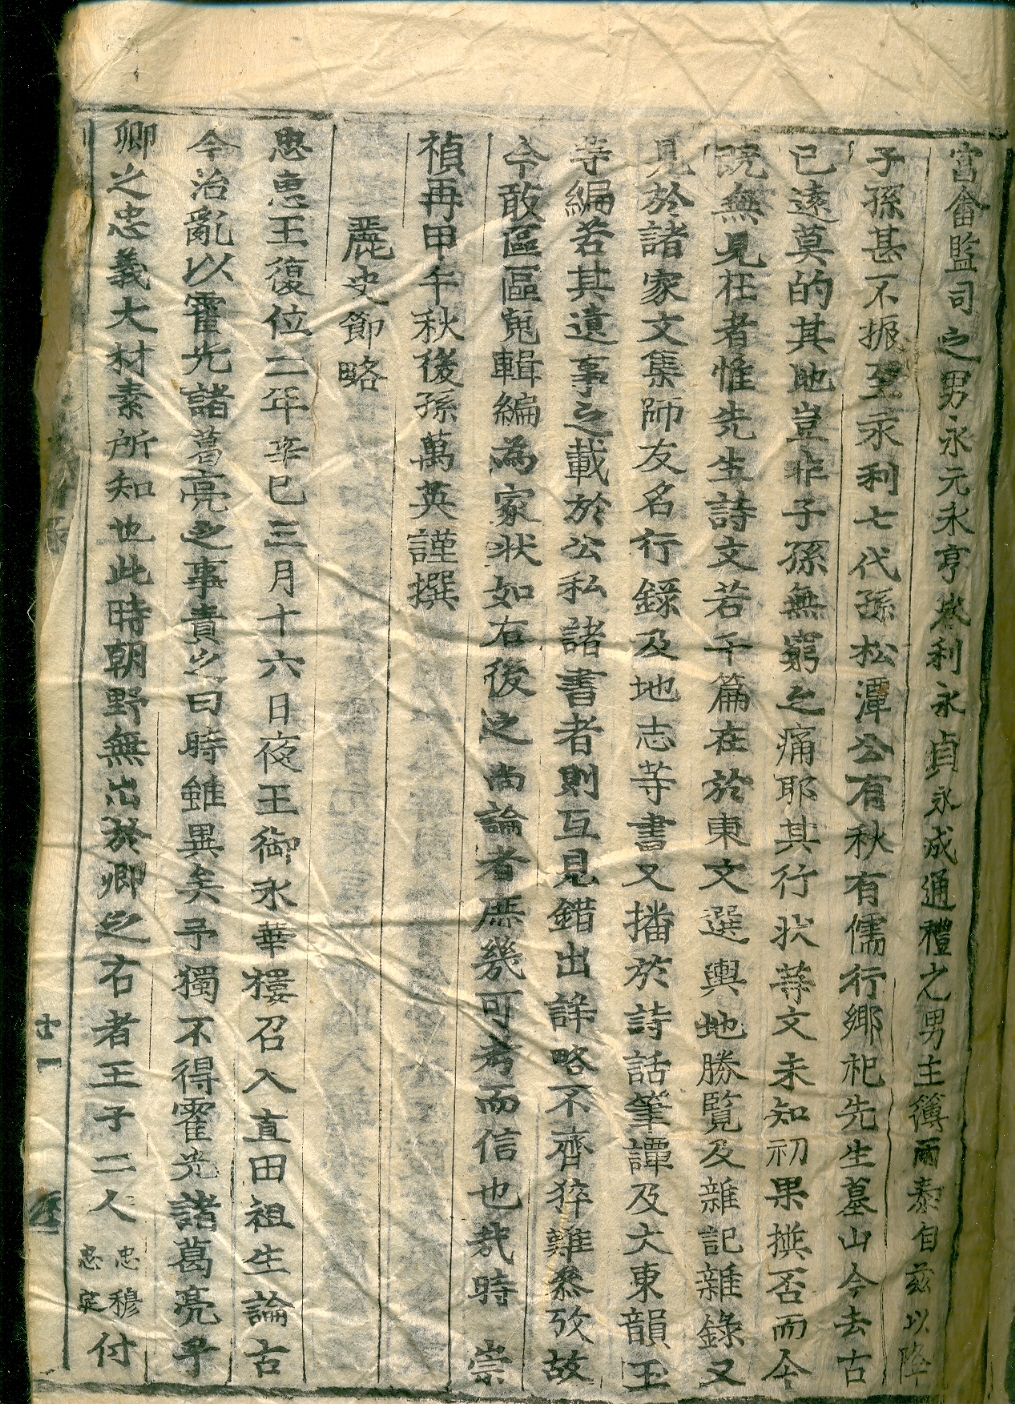 富畬監司之男永元永亨永利永貞永成通禮之男主簿雨泰自玆以降
子孫甚不振至永利七代孫松潭公有秋有儒行鄉祀先生墓山今去古
已遠莫的其地豈非子孫無窮之痛耶其行狀等文未知初果撰否而今
旣無見在者惟先生詩文若干篇在於東文選輿地勝覽及雜記雜錄又
見於諸家文集師友名行錄及地志等書又播於詩話筆譚及大東韻玉
等編若其遺事之載於公私諸書者則互見錯出詳略不齊猝難叅攷故
今敢區區蒐輯編為家狀如右後之尚論者庶幾可考而信也哉時 崇
禎再甲午秋後孫萬英謹撰
麗史節略
忠惠王復位二年辛巳三月十六日夜王御永華樓召入直田祖生論古
今治亂以霍光諸葛亮之事責之曰時雖異矣予獨不得霍光諸葛亮乎
卿之忠義大材素所知也此時朝野無出於卿之右者王子二人忠穆忠定付
十一